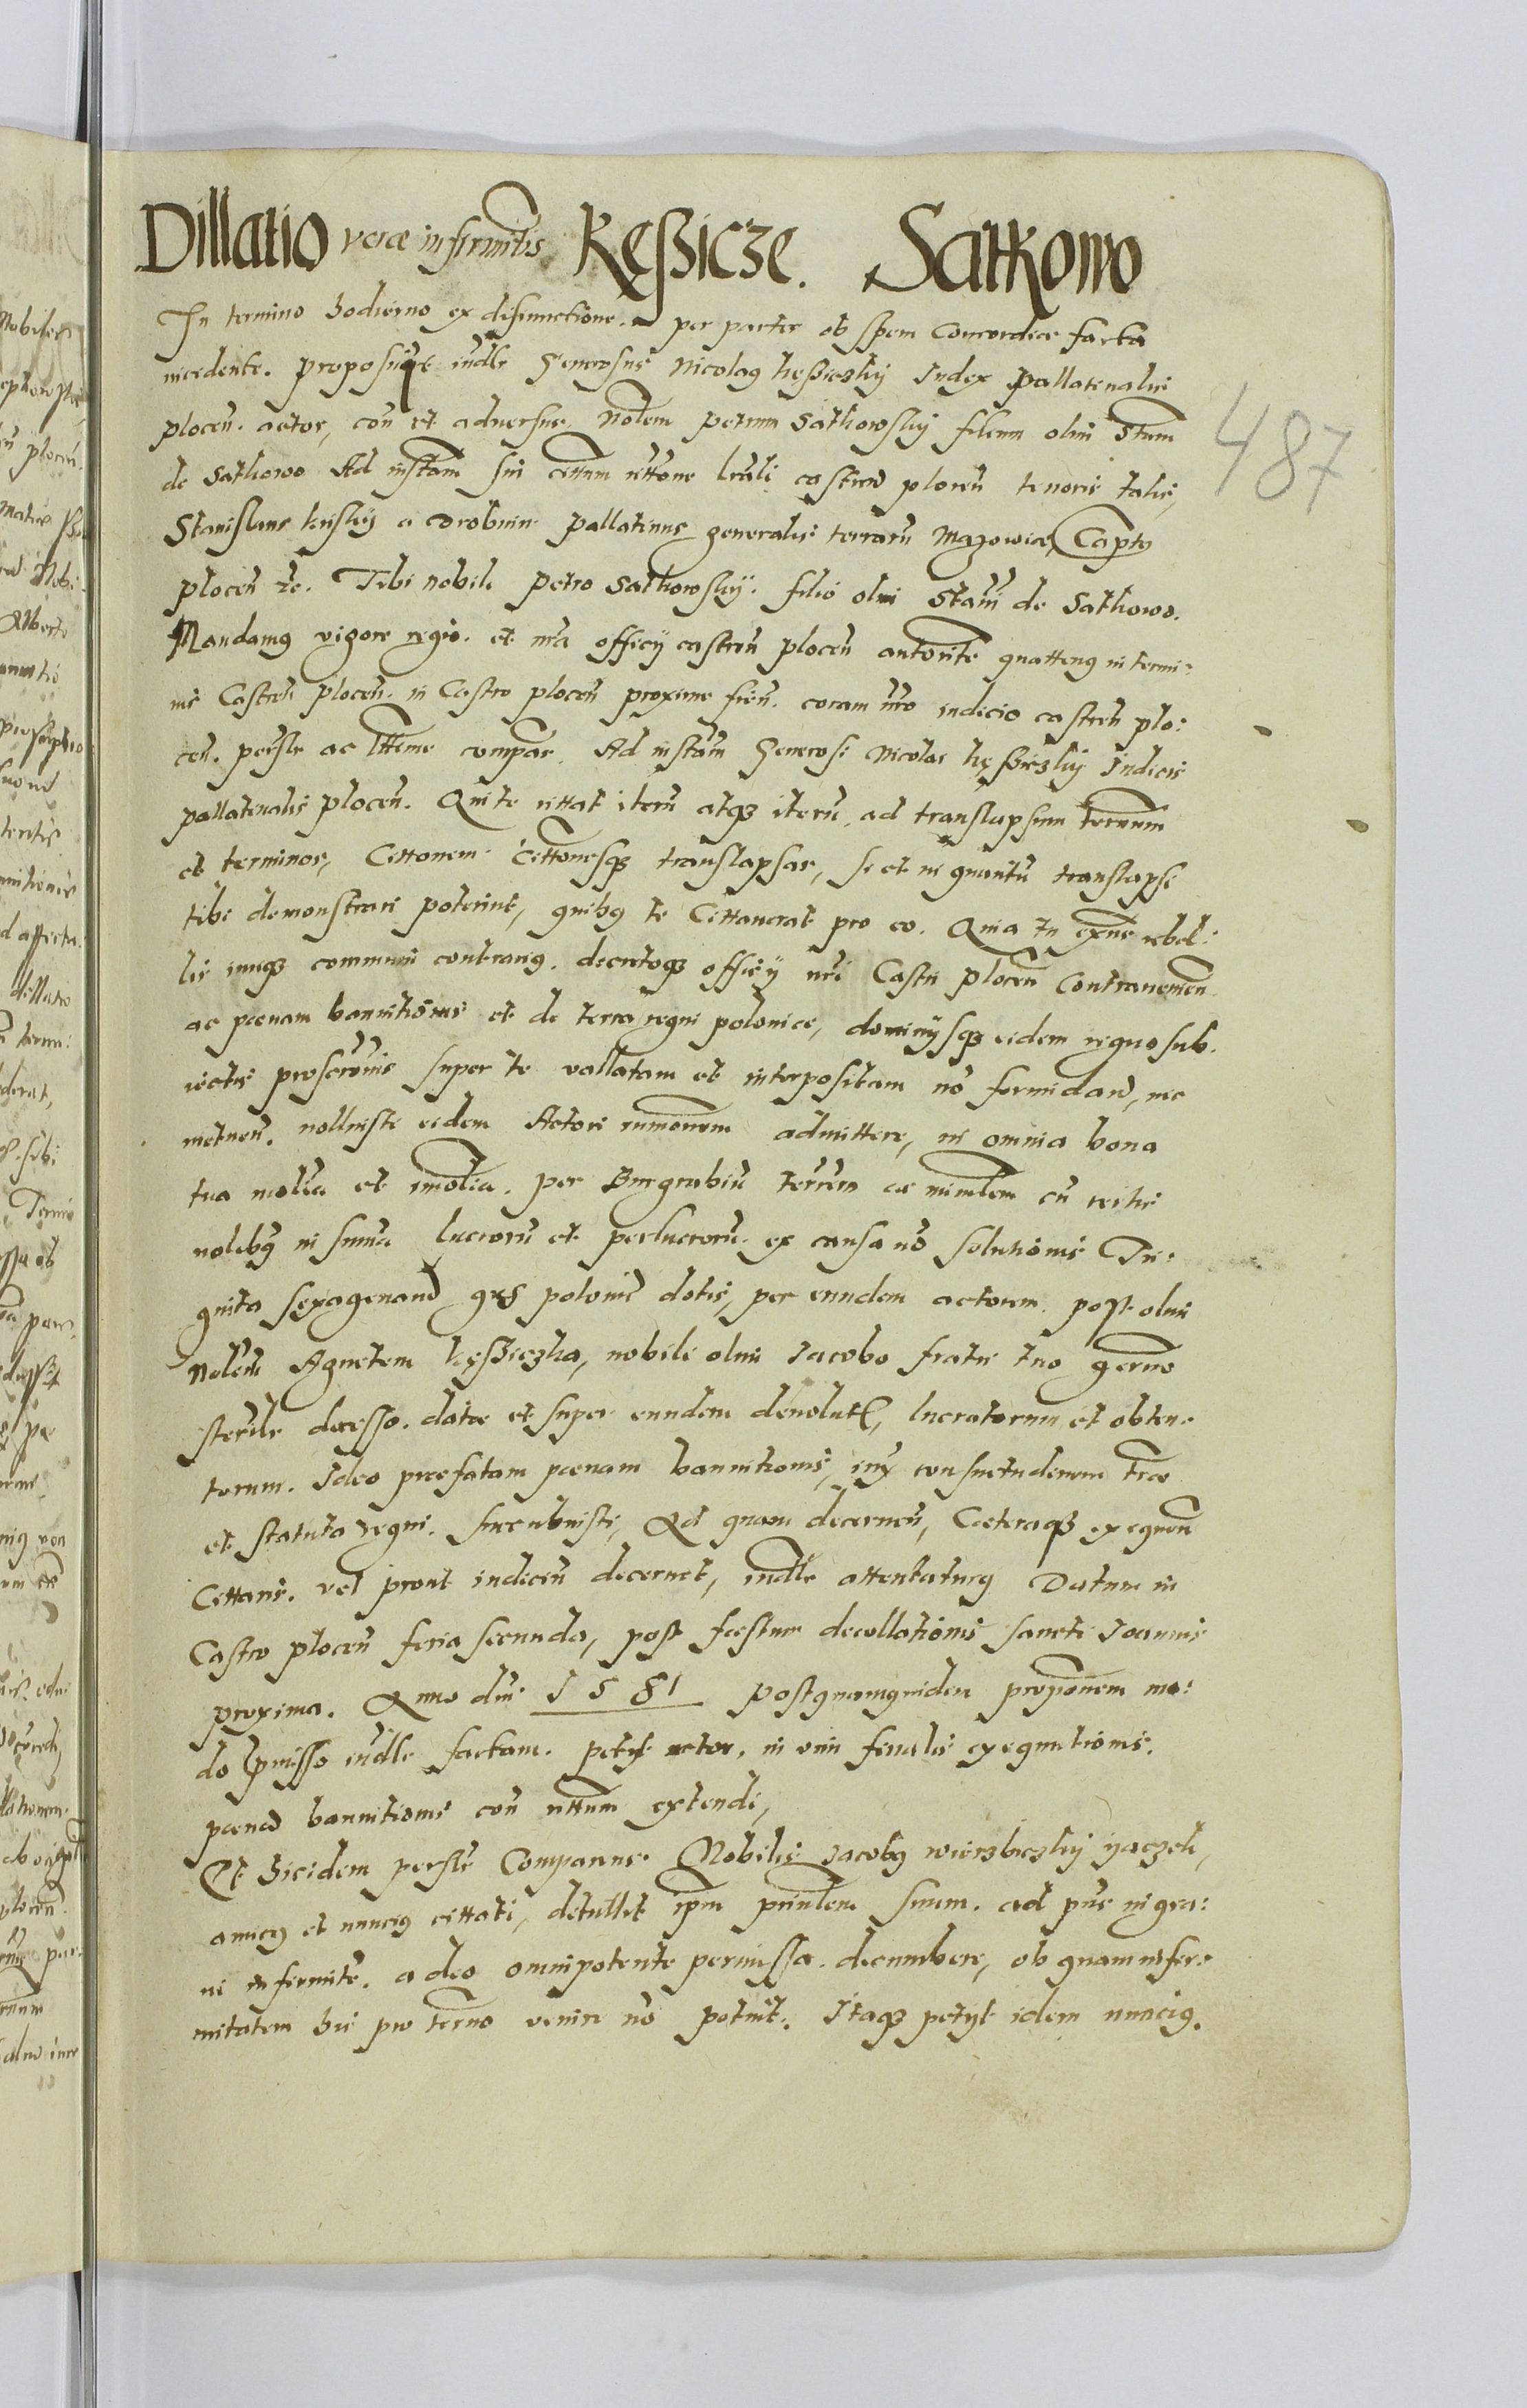 Dillatio veræ infirmitis Kęßicze. Satkowo
In termino hodierno ex disiunctione per partes ob spem concordiæ facta
incedente. proposuit iudle Generosus Nicolaus kęßiczkij Iudex pallatinalis
plocen. actor, con et aduersus Nobilem petrum Satkowskij filium olim Stani
de Satkowo Ad instam sui cittum cittone lrali castren plocen tenoris talis,
Stanislaus kriskij a Drobnin pallatinus generalis terraru Mazowiæ, Captus
plocen etc. Tibi nobili petro Satkowskij. filio olim Stani de Satkowo.
Mandamus vigore regio. et nra officij castren plocen autorite quattenus in termi:
nis Castren plocen. in Castro plocen proxime fien. coram nro iudicio castren plo:
cen. persler ac lttime compar. Ad instam Generosi Nicolai kęßiczkij Iudicis
pallatinalis plocen. Qui te cittat iteru atqz iteru, ad translapsum terminum
et terminos, Cittonem cittonesqz translapsas, si et in quantu translapsi
tibi demonstrari poterint, quibus te Cittauerat pro eo. Quia tu exns rebel:
lis iuriqz communi contrarius. decretoqz officij nri Castri plocen Contrauenien
ac pœnam bannitionis et de terra regni poloniæ, dominijsqz eidem regno sub.
iectis proscronis super te vallatam et interpositam no formidand, nec
metuen. noluisti eidem Actori rumonem admittere, in omnia bona
tua molia et imolia. per Burgrabiu terrtrem ac minlem cu testis
nolibus in suma lucroru et perlucroru ex causa no solutionis Qu:
quita sexagenaru grs polonic dotis, per eundem actorem. post olim
Nobilem Agnetem kęßiczka, nobili olim Iacobo fratri tuo germo
sterile decesso. datæ et super eundem deuolut, lucratorum et obten:
torum. Ideo præfatam pœnam bannitionis, iux consuetudinem træ
et statuta regni. succubuisti, Ad quam decernen, Cæteraqz exequen
Cittaris. vel prout iudiciu decernet, iudle attentaturus Datum in
Castro plocen feria secunda, post festum decollationis sancti Ioannis
proxima. Anno dni 1581 postquamquidem proponem mo:
do præmisso iudle factam. petijt actor, in vim finalis exequutionis.
pœnæ bannitionis con cittum extendi,
Et hicidem persler Comparens Nobilis Iacobus wierzbiczkij yaczek,
amicus et nuncius cittati, detullit ipm prinlem suum. ad pns in gra:
ui infirmite. a deo omnipotente permissa. decumbere, ob quam infir:
mitatem hic pro termo venire no potuit. Itaqz petijt idem nuncius.
487